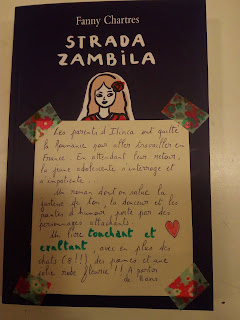 Fanny Chartres
STRADA
ZAMBILA
Les parents d'Ilinca ont quitté
la Roumanie pour aller travailler en
France. En attendant leur retour,
la jeune adolescente s'interroge et
s'impatiente.
Un roman dont on salue la
justesse de ton, la douceur et les
pointes d'humour, porté par des
personnages attachants.
Un livre touchant et
exaltant, avec en plus des
chats (8!!!), des poèmes et une
jolie robe fleurie!! A partir
de